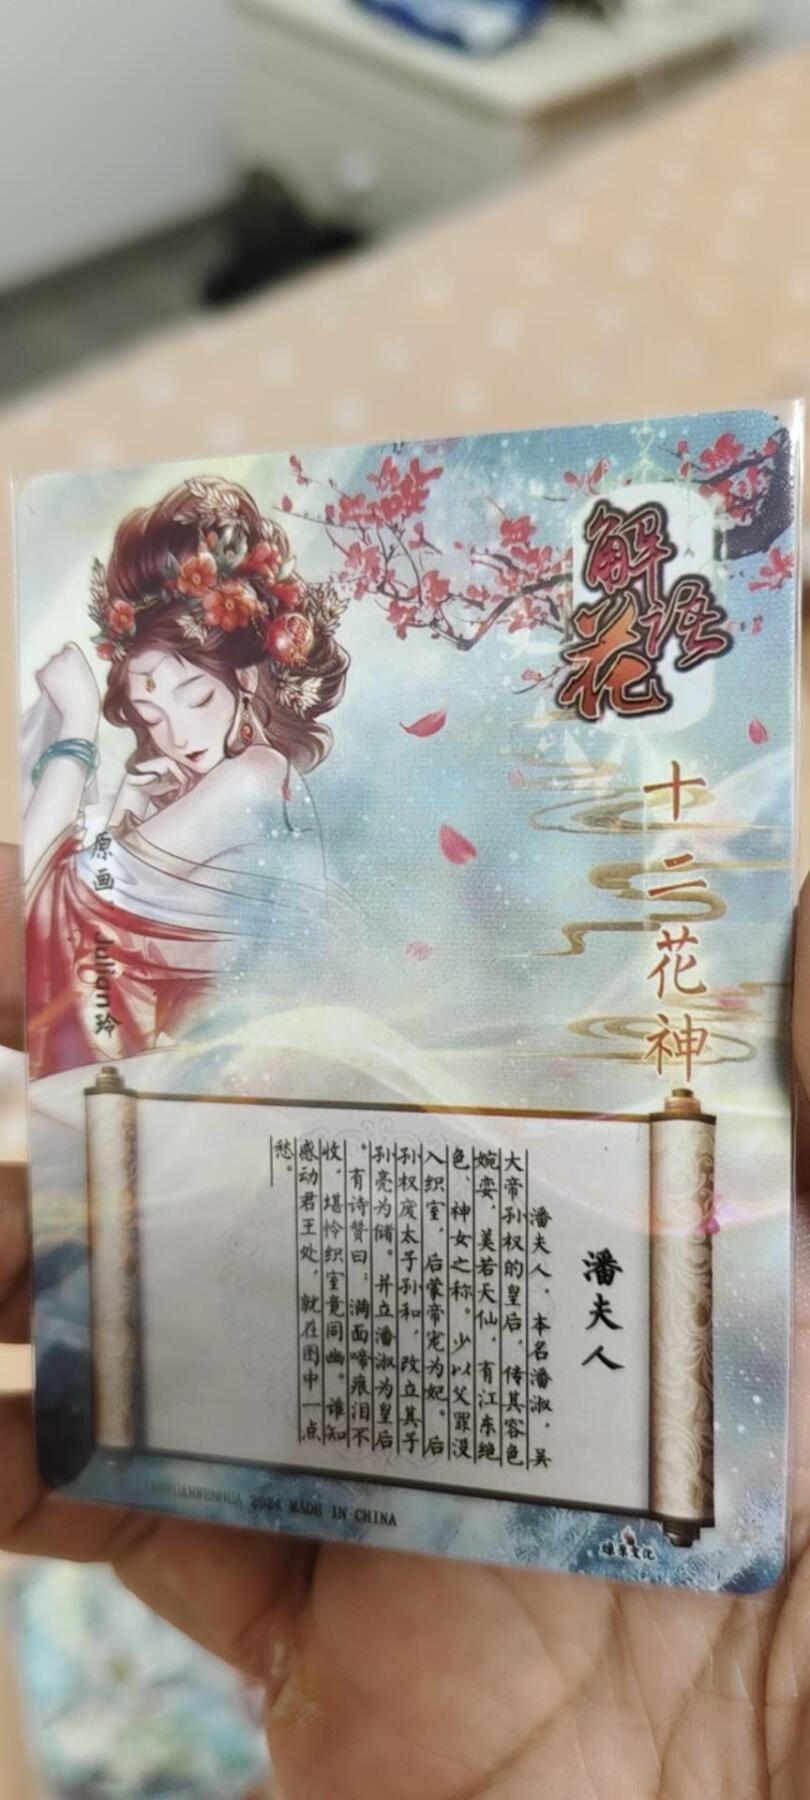 解语花
十二花神
原画：Julian玲
潘夫人
潘夫人，本名潘淑，吴
大帝孙权的皇后，传其容色
婉娈，美若天仙，有江东绝
色、神女之称。少以父罪没
入织室，后蒙帝宠为妃。后
孙权废太子孙和，改立其子
孙亮为储。并立潘淑为皇后
。有诗赞曰：满面啼痕泪不
收，堪怜织室竟同幽。谁知
感动君王处，就在图中一点
愁。
2024 MADE IN CHINA